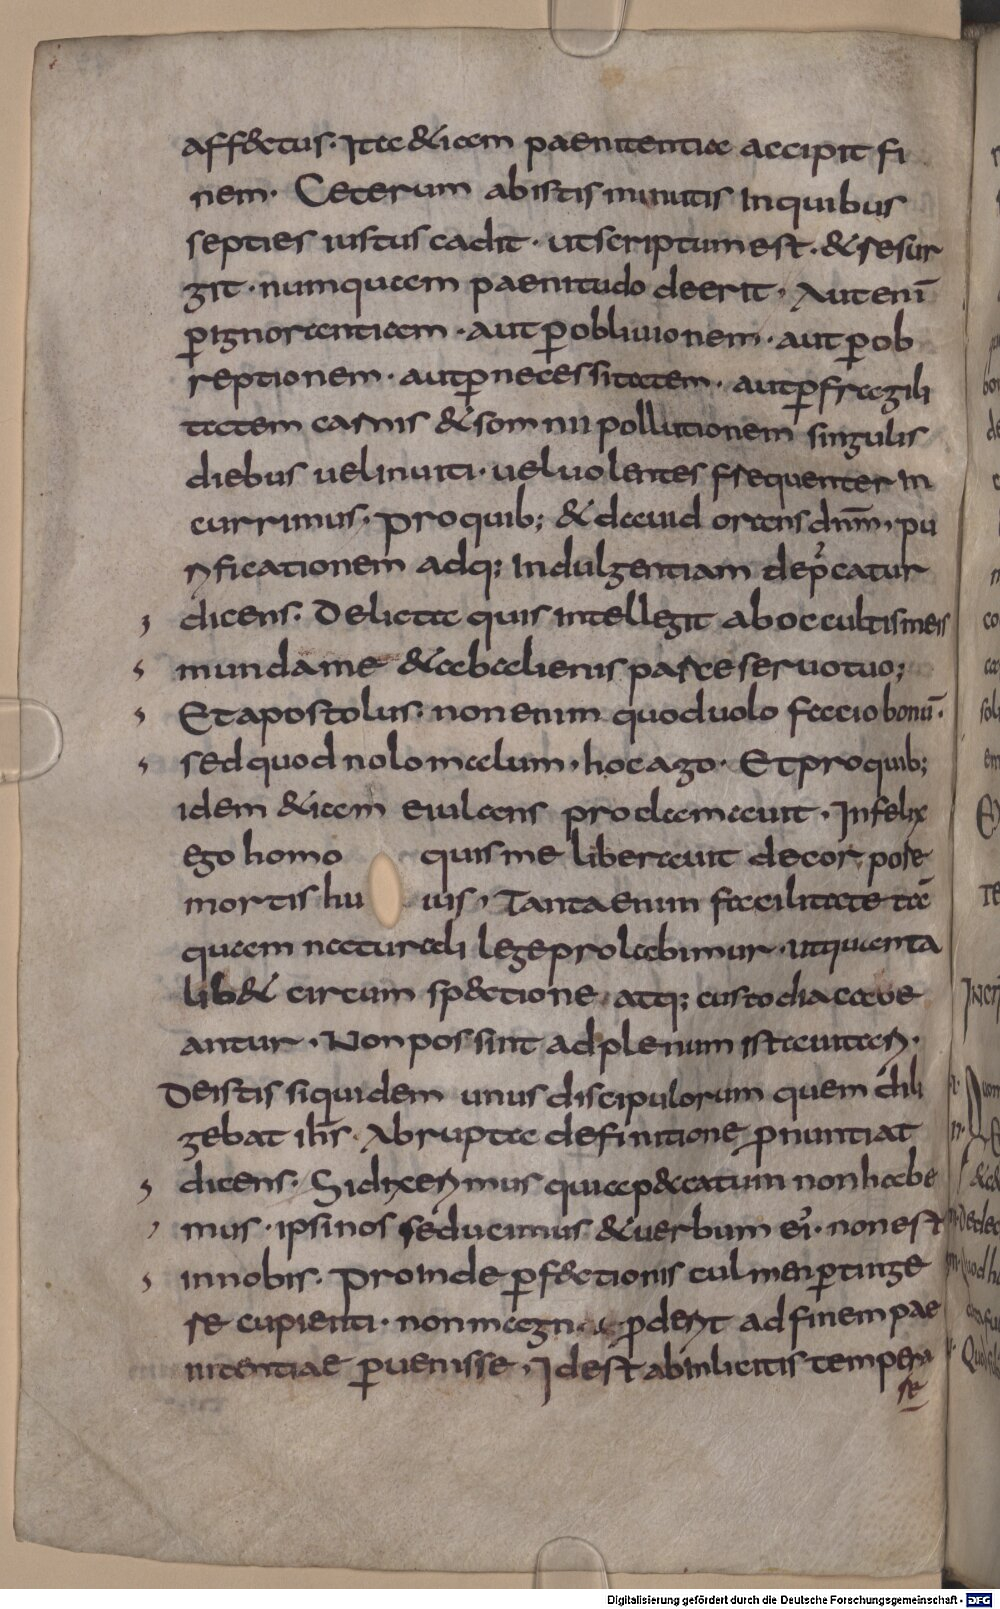 aff&ctus. Ita &iam paenitentiae accipit fi
nem. Ceterum ab istis minutis In quibus
septies iustus cadit. ut scriptum est. & resur
git. numquam paenitudo deerit. Aut eni̅
p̱ ignorantiam. aut p̱ obliuionem. aut p̱ ob
reptionem. aut p̱ necessitatem. aut p̱ fragili
tatem carnis & somnii pollutionem singulis
diebus uel inuiti. uel uolentes frequenter In
currimus. pro quib; & dauid orans dnm̅. pu
rificationem adq; Indulgentiam dep̓catur
dicens. Delicta quis intellegit ab occultis meis
munda me & ab alienis parce seruo tuo;
Et apostolus. non enim quod uolo facio bonu̅.
sed quod nolo malum. hoc ago. Et pro quib;
idem &iam eiulans proclamauit. Infelix
ego homo quis me liberauit de corpore
mortis huius. Tanta enim facilitate ta̅
quam naturali lege prolabimur. ut quanta
lib& circumsp&ctione atq; custodia caue
antur. Non possint ad plenum ista uitari.
De istis siquidem unus discipulorum quem dili
gebat ihs̅. Abrupta definitione p̱nuntiat
dicens. Si dixerimus quia p&ccatum non habe
mus. ipsi nos seducimus & uerbum ei̓. non est
in nobis. proinde p̱f&ctionis culmen p̱tinge
re cupienti. non magn p̱derit ad finem pae
nitentiae p̱uenisse. Id est ab inlicitis tempera
re
Digitalisierung gefördert durch die Deutsche Forschungsgemeinschaft - DFG